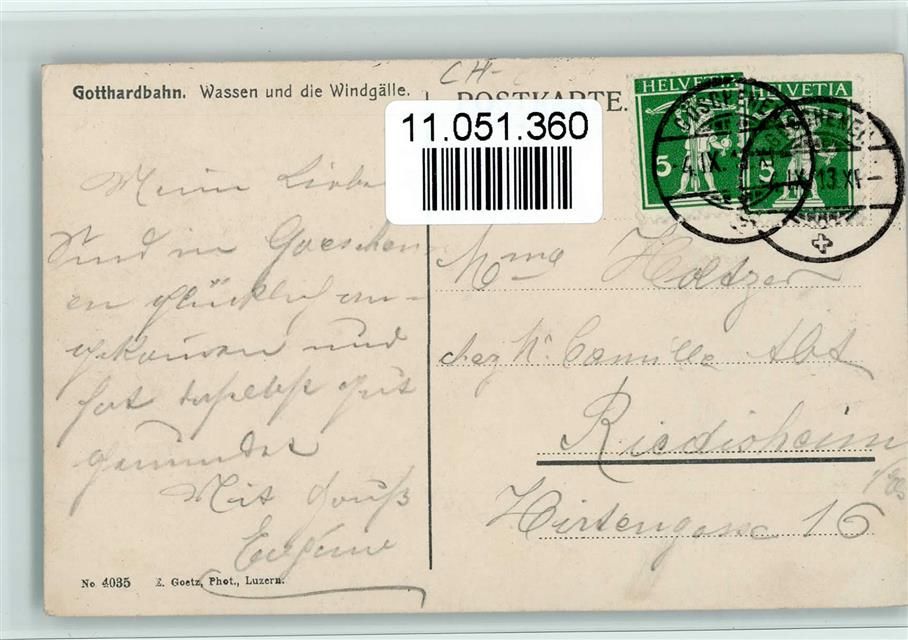 CH-
Gotthardbahn. Wassen und die Windgälle.
POSTKARTE.
11.051.360
HELVETIA
HELVETIA
5
5
GÖSCHENEN
GÖSCHENEN
4.IX.
4.IX.13.XI
Meine Liebe
Sind in Goeschen-
en glücklich an-
gekommen und
hat daselbst gut
gemundet
Mit Gruß
Eugène
Mme Holtzer
chez Mr. Camille Abt
Riedisheim
i/Els
Hirtengasse 16
No. 4035 E. Goetz, Phot., Luzern.